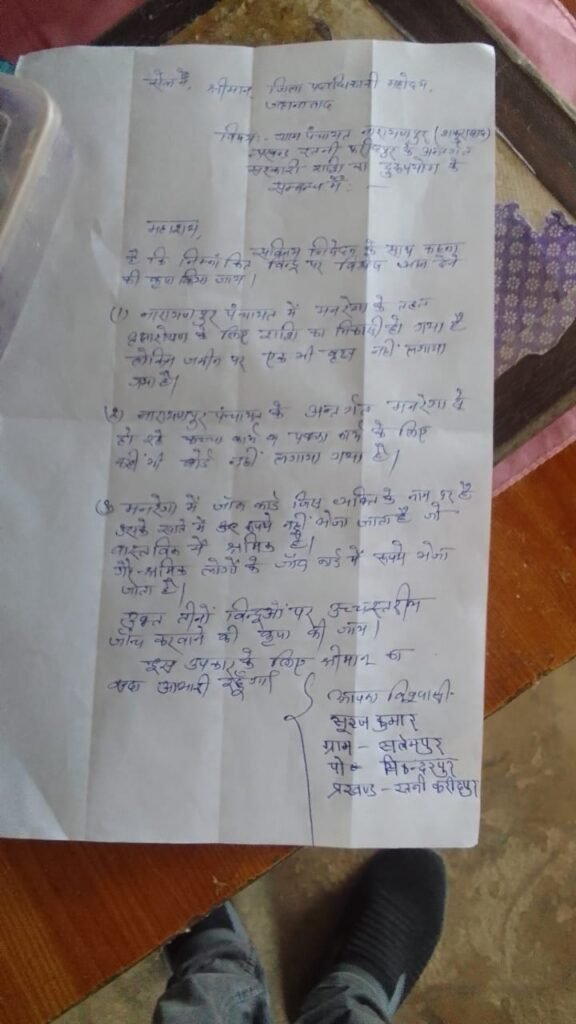 सेवा में, श्रीमान् जिला पदाधिकारी महोदय,
जहानाबाद
विषय:- ग्राम पंचायत नारायणपुर (शकुराबाद)
प्रखण्ड रतनी फरीदपुर के अन्तर्गत
सरकारी राशि का दुरूपयोग के
सम्बन्ध में : —
महाशय,
सविनय निवेदन के साथ कहना
है कि निम्नांकित बिन्दु पर विशेष ध्यान देने
की कृपा किया जाय।
(1) नारायणपुर पंचायत में मनरेगा के तहत
वृक्षारोपण के लिए राशि का निकासी हो गया है
लेकिन जमीन पर एक भी वृक्ष नहीं लगाया
गया है।
(2) नारायणपुर पंचायत के अन्तर्गत मनरेगा से
हो रहे कच्चा कार्य व पक्का कार्य के लिए
कहीं भी बोर्ड नहीं लगाया गया है।
(3 मनरेगा में जॉब कार्ड जिस व्यक्ति के नाम पर है
उसके खाते में रूपये नहीं भेजा जाता है जो
वास्तविक में श्रमिक है।
गैर-श्रमिक लोगों के जॉब कार्ड में रूपये भेजा
जाता है।
उक्त तीनों बिन्दुओं पर उच्चस्तरीय
जाँच करवाने की कृपा की जाय।
इस उपकार के लिए श्रीमान का
सदा आभारी रहूँगा।
आपका विश्वासी-
सूरज कुमार
ग्राम - सलेमपुर
पो -
प्रखण्ड - रतनी फरीदपुर